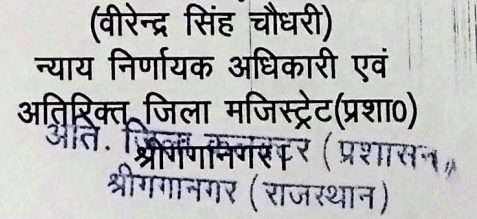 (वीरेन्द्र सिंह चौधरी)
न्याय निर्णायक अधिकारी एवं
अतिरिक्त जिला मजिस्ट्रेट(प्रशा0)
अति. जिला कलक्टर (प्रशासन)
श्रीगंगानगर।
श्रीगंगानगर (राजस्थान)